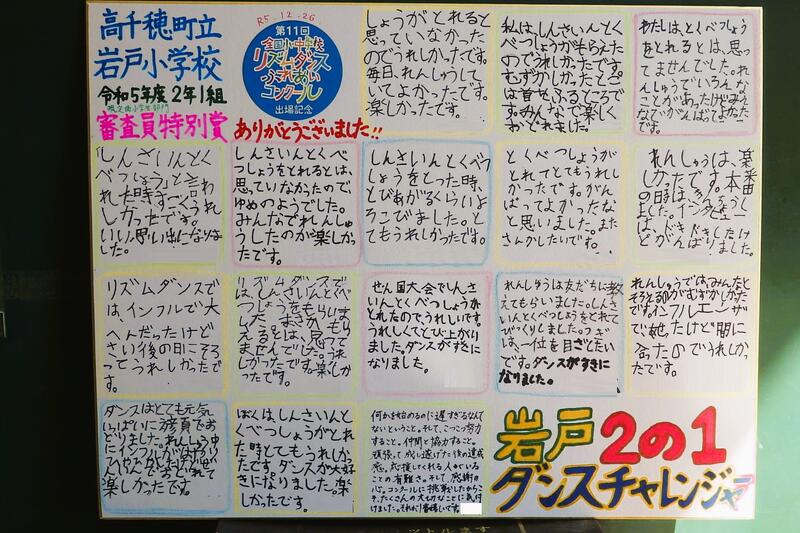 高千穂町立
岩戸小学校
令和5年度 2年1組
限定曲小学生部門
審査員特別賞
ありがとうございました!!
R5.12.26
第11回
全国小・中学校
リズムダンス
ふれあい
コンクール
出場記念
しょうがとれると
思っていなかった
のでうれしかったです。
毎日、れんしゅうして
いてよかったです。
楽しかったです。
私は、しんさいんとく
べつしょうが
のでうれしかったです。
むずかしかったところ
は首をふるところで
す。みんなで楽しく
おどれました。
わたしは、とくべつしょう
をとれるとは、思っ
てませんでした。れ
んしゅうでいろんな
ことがあったけどみん
なでがんばってよかったで
す。
「しんさいんとく
べつしょう」と言わ
れた時すごくうれ
しかったです。
いい思い出になりまし
た。
しんさいんとくべ
つしょうをとれるとは、
思っていなかったので
ゆめのようでした。
みんなでれんしゅ
うしたのが楽しかっ
たです。
しんさいんとくべつ
しょうをとった時、
とびあがるくらいよ
ろこびました。と
てもうれしかったです。
とくべつしょうが
とれてとてもうれし
かったです。がん
ばってよかったな
と思いました。また
さんかしたいです。
れんしゅうは、楽
しかったです。本番
の日は、きんちょうし
ました。インタビュー
は、ドキドキしたけ
どがんばりました。
リズムダンスで
は、インフルで大
へんだったけど
さい後の日にそろ
ってうれしかったです。
リズムダンスで
は、しんさいんとくべ
つしょうをもらいまし
た。まさかもら
えるとは、思って
ませんでした。うれ
しかったです。楽し
かったです。
せん国大会でしんさ
いんとくべつしょうが
とれたので、うれしいです。
うれしくてとび上がり
ました。ダンスがすきに
なりました。
れんしゅうは友だちに教
えてもらいました。しんさ
いんとくべつしょうをとれて
びっくりしました。つぎ
は、一位を目ざしたい
です。ダンスがすきに
なりました。
れんしゅうでは、みんなと
そろえるのがむずかしかった
です。インフルエンザ
でねったけど間に
合ったのでうれしかっ
たです。
ダンスはとても元気
いっぱいに
どりました。れんしゅう中
にインフルが
楽しかったです。
ぼくは、しんさいんと
くべつしょうがとれ
た時とてもうれしかっ
たです。ダンスが大好
きになりました。楽
しかったです。
何かを始めるのに遅すぎるなんて
ないということ。そして、こつこつ努力
すること。仲間と協力すること。
頑張って成し遂げた後の達成
感。応援してくれる人々がいる
ことの有難さ。そして、感謝の
心。コンクールに挑戦したからこ
そ、たくさんの大切なことに気付
けました。それが1番嬉しいです。
岩戸2の1
ダンスチャレンジャー